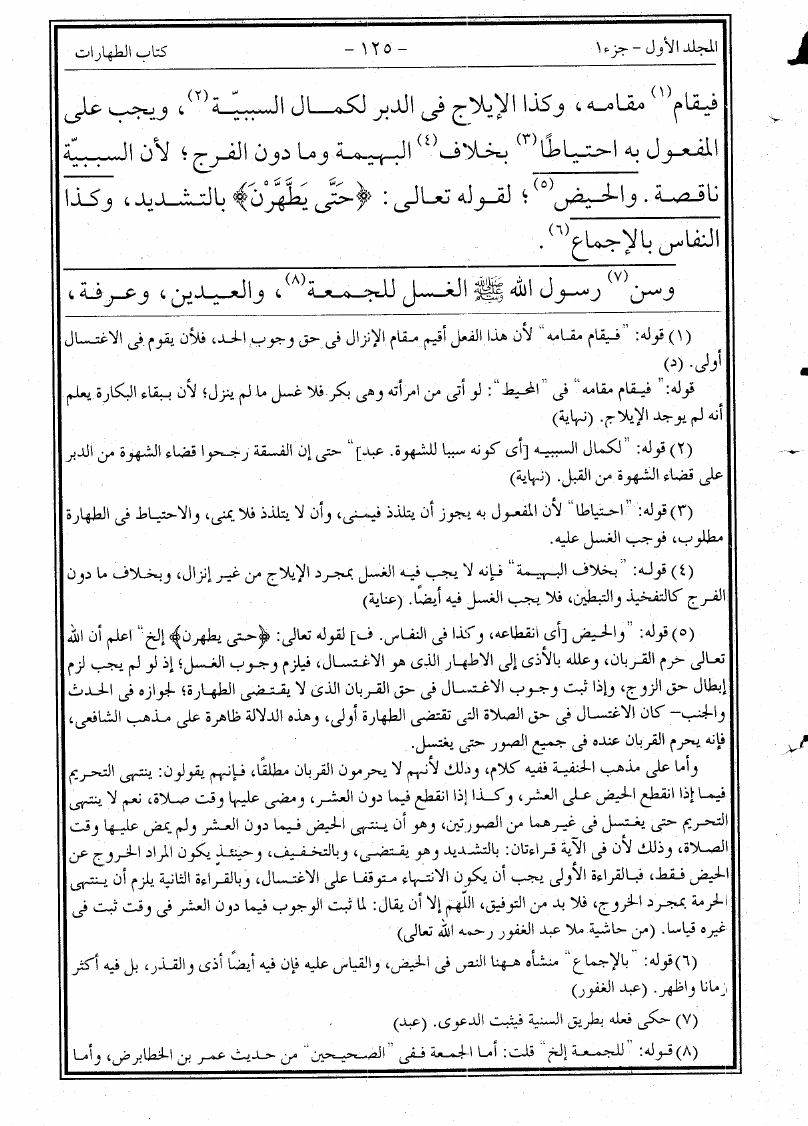 المجلد الأول – جزء١ – ١٢٥ – كتاب الطهارات
فيقام(١) مقامه، وكذا الإيلاج فى الدبر لكمال السببيّة(٢)، ويجب على
المفعول به احتياطًا(٣) بخلاف(٤) البهيمة وما دون الفرج؛ لأن السببيّة
ناقصة. والحيض(٥)؛ لقوله تعالى: ﴿حَتَّى يَطَّهَّرْنَ﴾ بالتشديد، وكذا
النفاس بالإجماع(٦).
وسن(٧) رسول الله ﷺ الغسل للجمعة(٨)، والعيدين، وعرفة،
(١) قوله: "فيقام مقامه" لأن هذا الفعل أقيم مقام الإنزال فى حق وجوب الحد، فلأن يقوم فى الاغتسال
أولى. (د)
قوله: "فيقام مقامه" فى "المحيط": لو أتى من امرأته وهى بكر فلا غسل ما لم ينزل؛ لأن ببقاء البكارة يعلم
أنه لم يوجد الإيلاج. (نهاية)
(٢) قوله: "لكمال السببيه [أى كونه سببا للشهوة. عبد]" حتى إن الفسقة رجحوا قضاء الشهوة من الدبر
على قضاء الشهوة من القبل. (نهاية)
(٣) قوله: "احتياطا" لأن المفعول به يجوز أن يتلذذ فيمنى، وأن لا يتلذذ فلا يمنى، والاحتياط فى الطهارة
مطلوب، فوجب الغسل عليه.
(٤) قوله: "بخلاف البهيمة" فإنه لا يجب فيه الغسل بمجرد الإيلاج من غير إنزال، وبخلاف ما دون
الفرج كالتفخيذ والتبطين، فلا يجب الغسل فيه أيضًا. (عناية)
(٥) قوله: "والحيض [أى انقطاعه، وكذا فى النفاس. ف] لقوله تعالى: ﴿حتى يطهرن﴾ إلخ" اعلم أن الله
تعالى حرم القربان، وعلله بالأذى إلى الاطهار الذى هو الاغتسال، فيلزم وجوب الغسل؛ إذ لو لم يجب لزم
إبطال حق الزوج، وإذا ثبت وجوب الاغتسال فى حق القربان الذى لا يقتضى الطهارة؛ لجوازه فى الحدث
والجنب– كان الاغتسال فى حق الصلاة التى تقتضى الطهارة أولى، وهذه الدلالة ظاهرة على مذهب الشافعى،
فإنه يحرم القربان عنده فى جميع الصور حتى يغتسل.
وأما على مذهب الحنفية ففيه كلام، وذلك لأنهم لا يحرمون القربان مطلقًا، فإنهم يقولون: ينتهى التحريم
فيما إذا انقطع الحيض على العشر، وكذا إذا انقطع فيما دون العشر، ومضى عليها وقت صلاة، نعم لا ينتهى
التحريم حتى يغتسل فى غيرهما من الصورتين، وهو أن ينتهى الحيض فيما دون العشر ولم يمض عليها وقت
الصلاة، وذلك لأن فى الآية قراءتان: بالتشديد وهو يقتضى، وبالتخفيف، وحينئذ يكون المراد الخروج عن
الحيض فقط، فبالقراءة الأولى يجب أن يكون الانتهاء متوقفا على الاغتسال، وبالقراءة الثانية يلزم أن ينتهى
الحرمة بمجرد الخروج، فلا بد من التوفيق، اللّهم إلا أن يقال: لما ثبت الوجوب فيما دون العشر فى وقت ثبت فى
غيره قياسا. (من حاشية ملا عبد الغفور رحمه الله تعالى)
(٦) قوله: "بالإجماع" منشأه ههنا النص فى الحيض، والقياس عليه فإن فيه أيضًا أذى والقذر، بل فيه أكثر
زمانا واظهر. (عبد الغفور)
(٧) حكى فعله بطريق السنية فيثبت الدعوى. (عبد)
(٨) قوله: "للجمعة إلخ" قلت: أما الجمعة ففى "الصحيحين" من حديث عمر بن الخطابرض، وأما